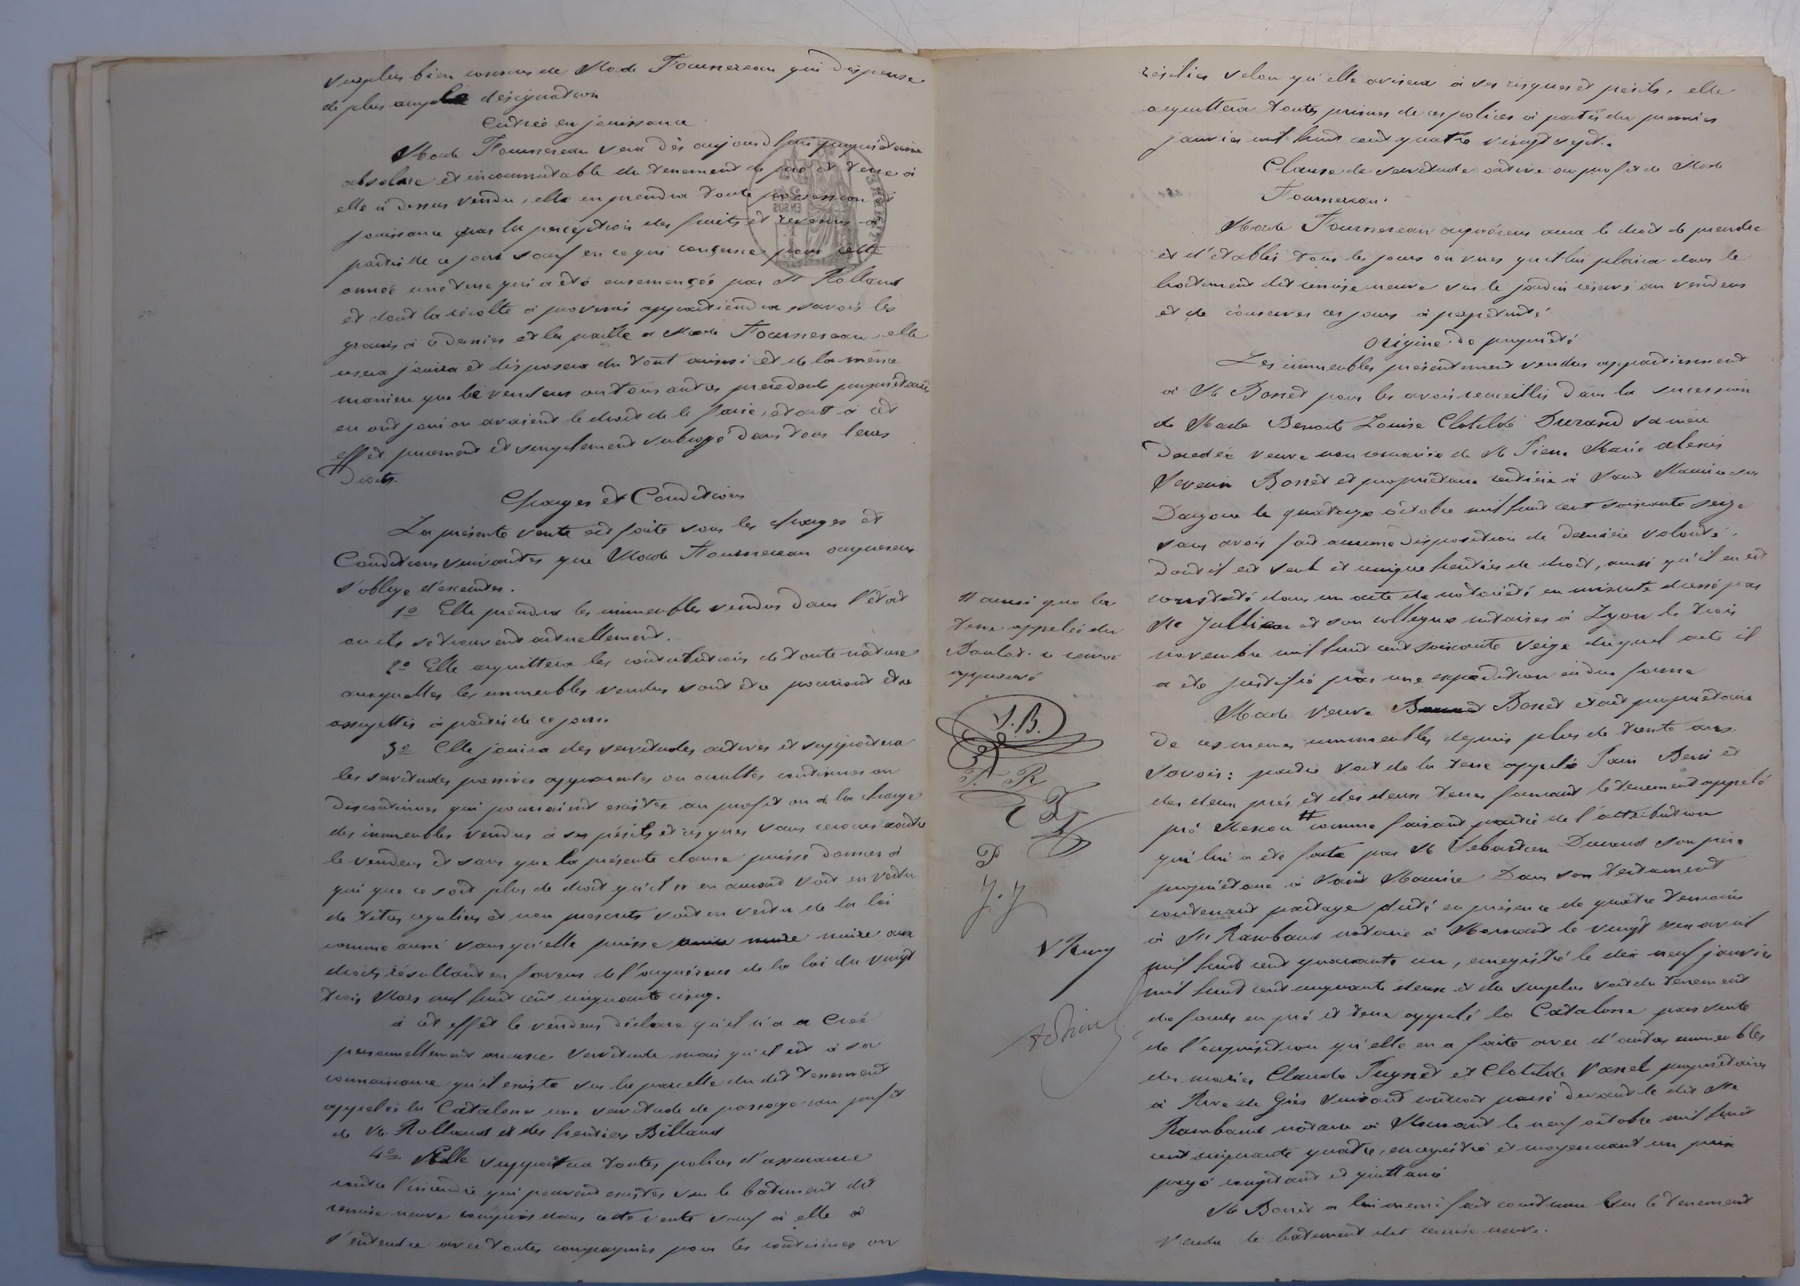 surplus bien connus de Made Fournereau qui dispense
de plus ample désignation
Entrée en jouissance
Made Fournereau sera dès aujourd'hui propriétaire
absolue et incommutable du tenement de pré et terre à
elle ci dessus vendu, elle en prendra toute possession et
jouissance par la perception des fruits et revenus à
partir de ce jour sauf en ce qui concerne pour cette
année une terre qui a été ensemencée par Mr Rolland
et dont la récolte à provenir appartiendra savoir les
grains à ce dernier et la paille à Made Fournereau, elle
usera jouira et disposera du tout ainsi et de la même
manière que le vendeur ou tous autres précédents propriétaires
en ont joui ou avaient le droit de le faire, étant à cet
effet purement et simplement subrogé dans tous leurs
droits.
Charges et Conditions
La présente vente est faite sous les charges et
Conditions suivantes que Made Fournereau acquéreur
s'oblige d'exécuter.
1o Elle prendra les immeubles vendus dans l'état
où ils se trouvent actuellement.
2o Elle acquittera les contributions de toute nature
auxquelles les immeubles vendus sont ou pourront être
assujettis à partir de ce jour.
3o Elle jouira des servitudes actives et supportera
les servitudes passives apparentes ou occultes continues ou
discontinues qui pourraient exister au profit ou à la charge
des immeubles vendus à ses périls et risques sans recours contre
le vendeur et sans que la présente clause puisse donner à
qui que ce soit plus de droit qu'il n'en aurait soit en vertu
de titres réguliers et non prescrits soit en vertu de la loi
comme aussi sans qu'elle puisse nuire aux
droits résultant en faveur de l'acquéreur de la loi du vingt
trois Mars mil huit cent cinquante cinq.
à cet effet le vendeur déclare qu'il n'a créé
personnellement aucune servitude mais qu'il est à sa
connaissance qu'il existe sur la parcelle du dit tenement
appelée la Catalone une servitude de passage au profit
de Mr Rolland et des héritiers Billand
4o Elle supportera toutes polices d'assurance
contre l'incendie qui peuvent exister sur le bâtiment dit
remise neuve compris dans cette vente sauf à elle à
s'entendre avec toutes compagnies pour les continuer ou
résilier selon qu'elle avisera à ses risques et périls, elle
acquittera toutes primes de ces polices à partir du premier
janvier mil huit cent quatre vingt sept.
Clause de servitude active au profit de Made
Fournereau.
Made Fournereau acquéreur aura le droit de prendre
et d'établir tous les jours ou vues qu'il lui plaira dans le
bâtiment dit remise neuve sur le jardin réservé au vendeur
et de conserver ces jours à perpétuité
Origine de propriété
Les immeubles présentement vendus appartiennent
à Mr Bonet pour les avoir recueillis dans la succession
de Made Benoite Louise Clotilde Durand sa mère
décédée veuve non remariée de Mr Pierre Marie Alexis
Bonet et propriétaire rentière à Saint Maurice sur
Dargoire le quatorze octobre mil huit cent soixante seize
sans avoir fait aucune disposition de dernière volonté,
dont il est seul et unique héritier de droit, ainsi qu'il en est
constaté dans un acte de notoriété en minute dressé par
Me Jullien et son collègue notaires à Lyon le trois
novembre mil huit cent soixante seize duquel acte il
a été justifié par une expédition en due forme
Made veuve Bonet était propriétaire
de ces mêmes immeubles depuis plus de trente ans
savoir: partie soit de la terre appelée
des deux prés et des deux terres formant le tenement appelé
pré comme faisant partie de l'attribution
qui lui a été faite par Mr Sébastien Durand son père
propriétaire à Saint Maurice dans son testament
contenant partage dicté en présence de quatre témoins
à Me Rambaud notaire à Mornant le vingt avril
mil huit cent quarante un, enregistré le dix neuf janvier
mil huit cent cinquante deux et du surplus soit du tenement
de fonds en pré et terre appelé la Catalone par suite
de l'acquisition qu'elle en a faite avec d'autres immeubles
des mariés Claude Puynet et Clotilde Vanel propriétaires
à Rive de Gier suivant contrat passé devant le dit Me
Rambaud notaire à Mornant le neuf octobre mil huit
cent cinquante quatre, enregistré et moyennant un prix
payé comptant et quittancé
Mr Bonet a lui même fait construire sur le tenement
vendu le bâtiment dit remise neuve.
# ainsi que la
terre appelée du
renvoi
approuvé
J.B.
P. R
P
J.J